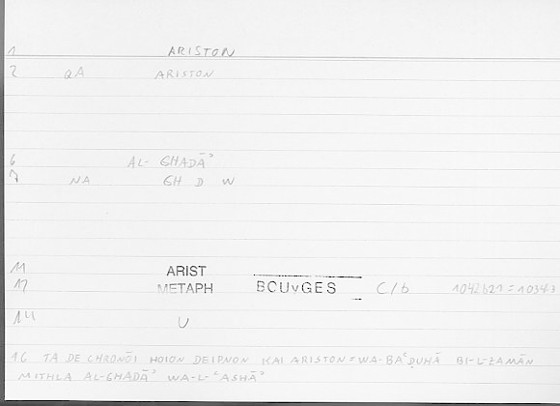 1 ARISTON
2 QA ARISTON
6 AL-GHADĀʾ
7 NA GH D W
11 ARIST
12 METAPH BOUYGES C/b 1042b21=1034,3
14 U
16 TA DE CHRONŌI HOION DEIPNON KAI ARISTON = WA-BAʿḌUHĀ BI-L-ZAMĀN
MITHLA AL-GHADĀʾ WA-L-ʿASHĀʾ